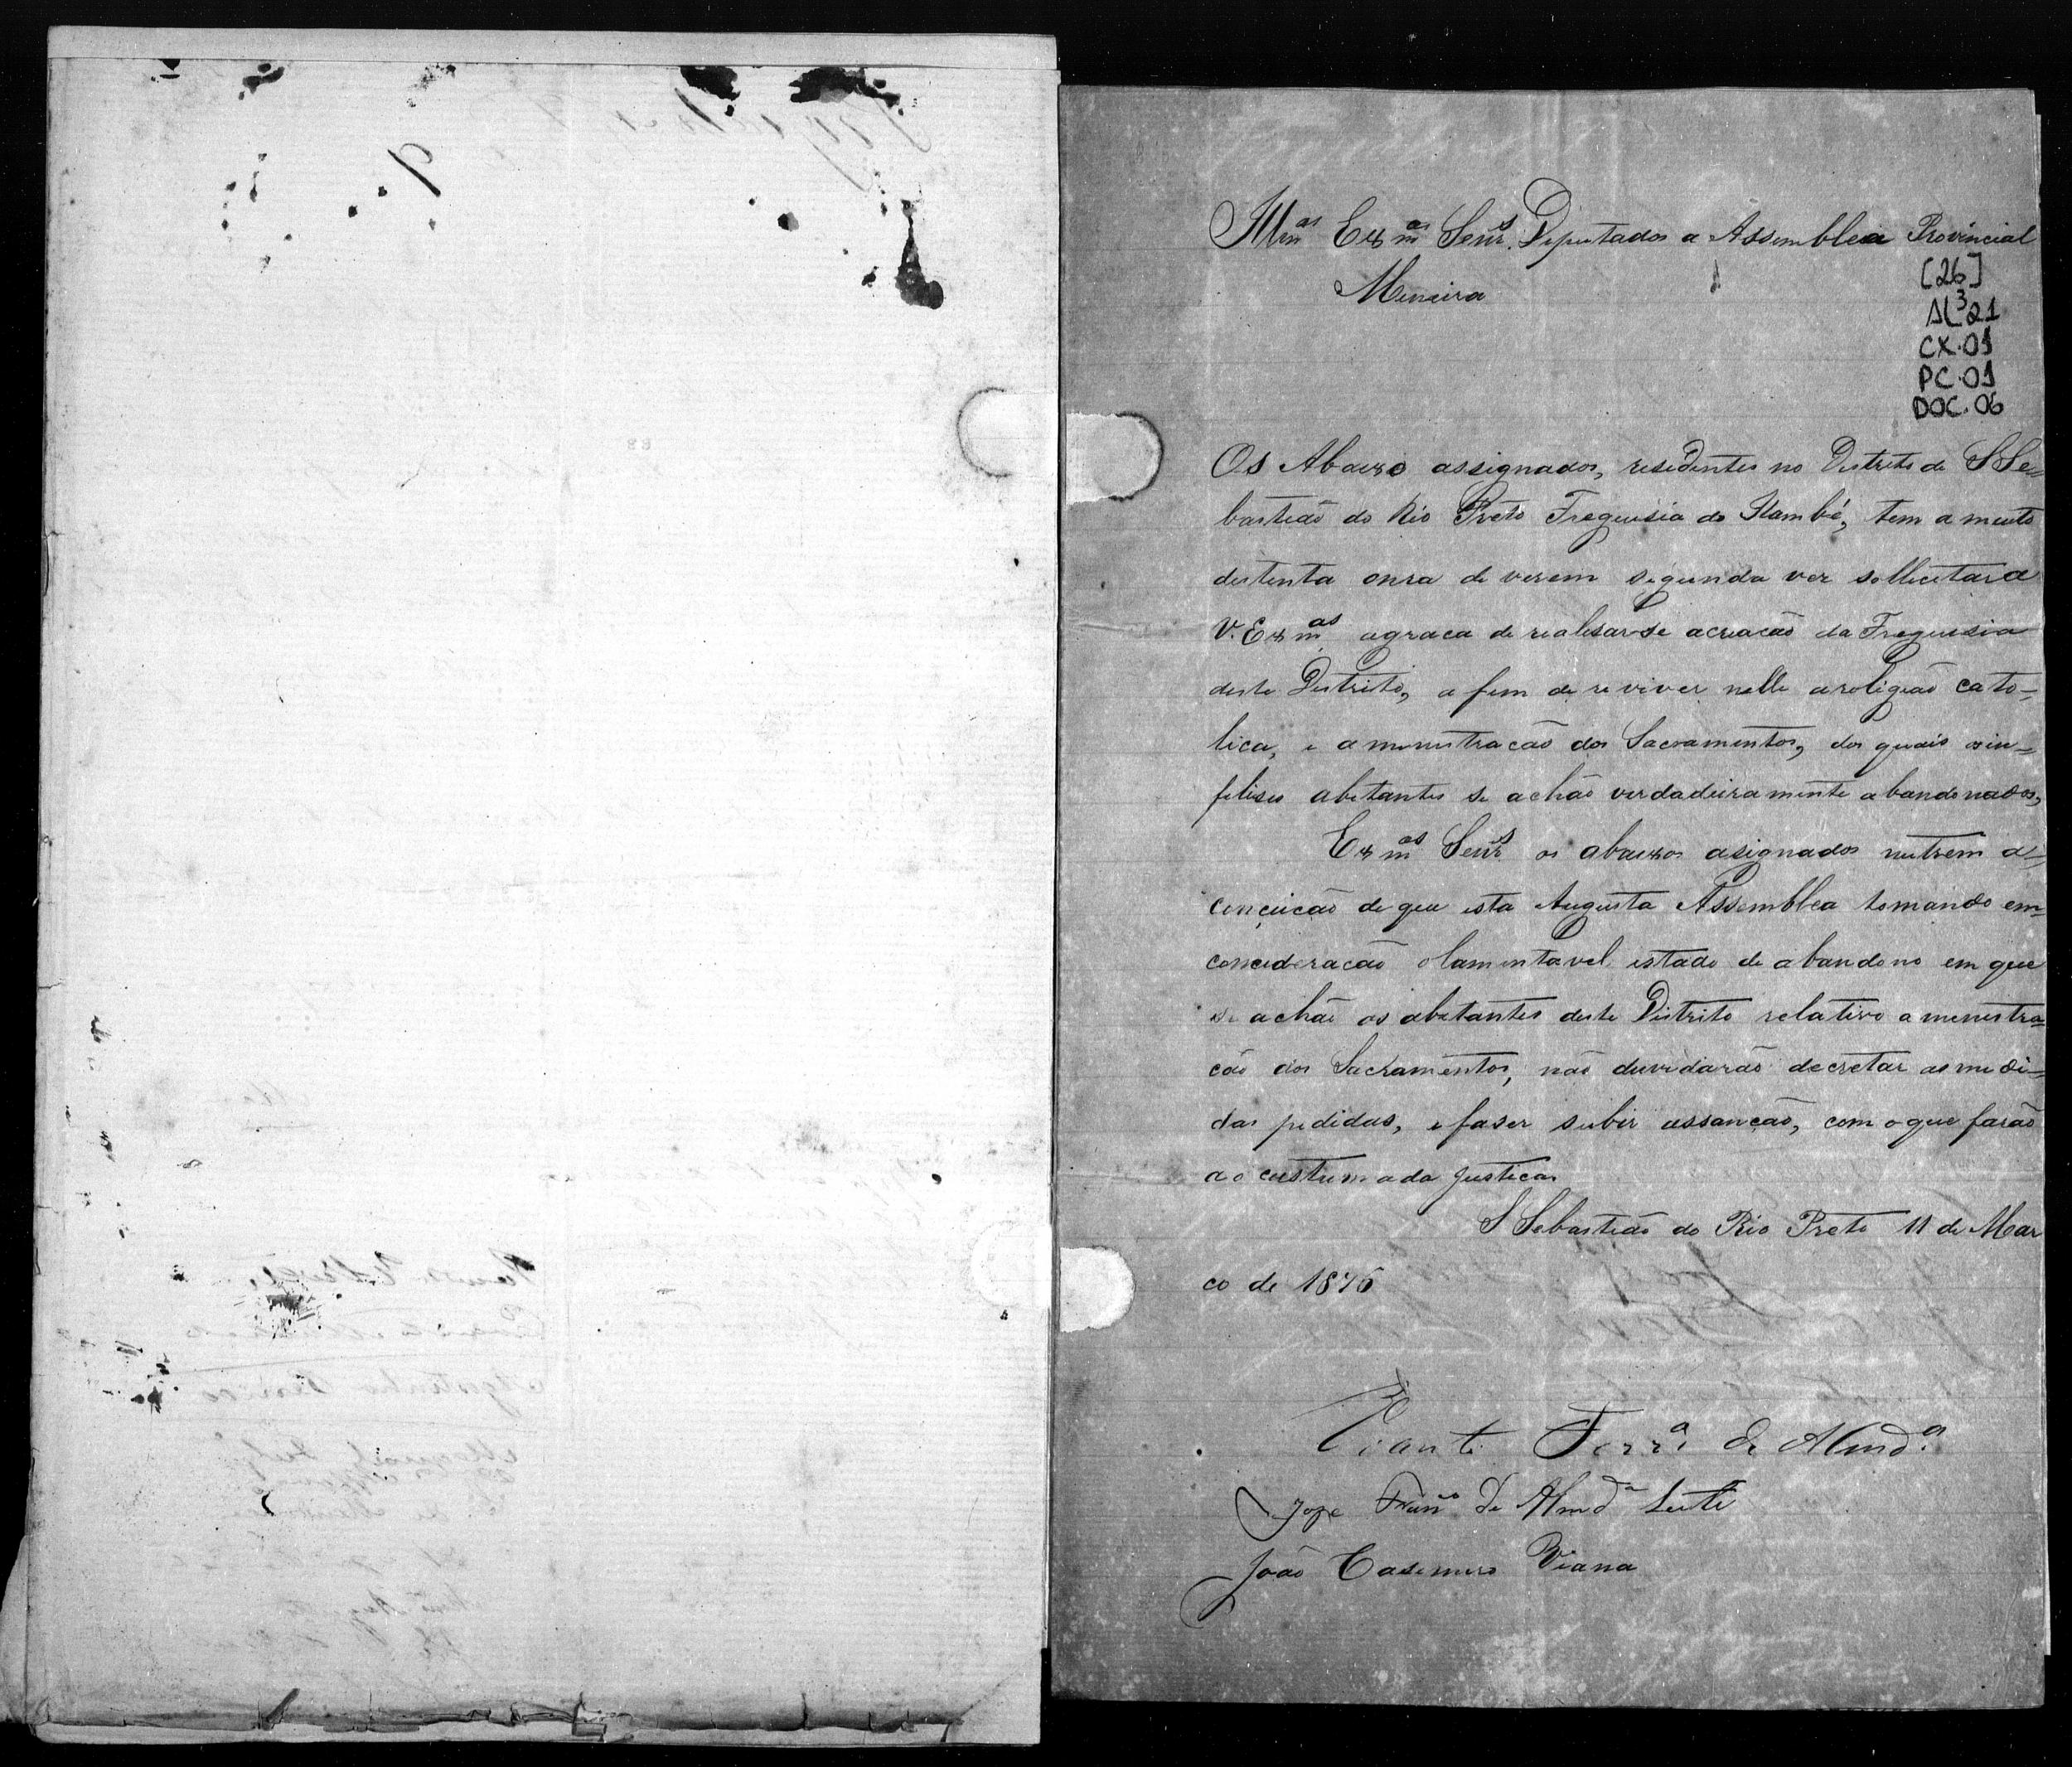 Illm.os Exm.os Senr.s Deputados a Assemblea Provincial
Mineira
[26]
AL³21
CX.01
PC.01
DOC.06
Os Abaixo assignados, residentes no Destrito de S Se=
bastião do Rio Preto Freguisia do Itambé, tem a muito
destinta onra de verem segunda vez sollicitar a
V. Exm.as agraca de realisar-se acreacão da Freguisia
deste Destrito, a fim de reviver nelle areligião cato-
lica, e amenistracão dos Sacramentos, dos quais osin-
felises abitantes se achão verdadeiramente abandonados,
Exm.os Senr.s os abaixos asignados nutrem a-
conçuicão de que esta Augusta Assemblea tomando em=
concideracão olamentavel estado de abandono em que
se achão os abitantes deste Distrito relativo amenistra=
cão dos Sacramentos, não duvidarão decretar as medi=
das pedidas, e faser subir assancão, com o que farão
a o custumada justica.
S Sebastião do Rio Preto 11 de Mar
co de 1876
Ferr.a de Almd.a
Joze Fran.co de Almd.a Leite
João Casemiro Viana